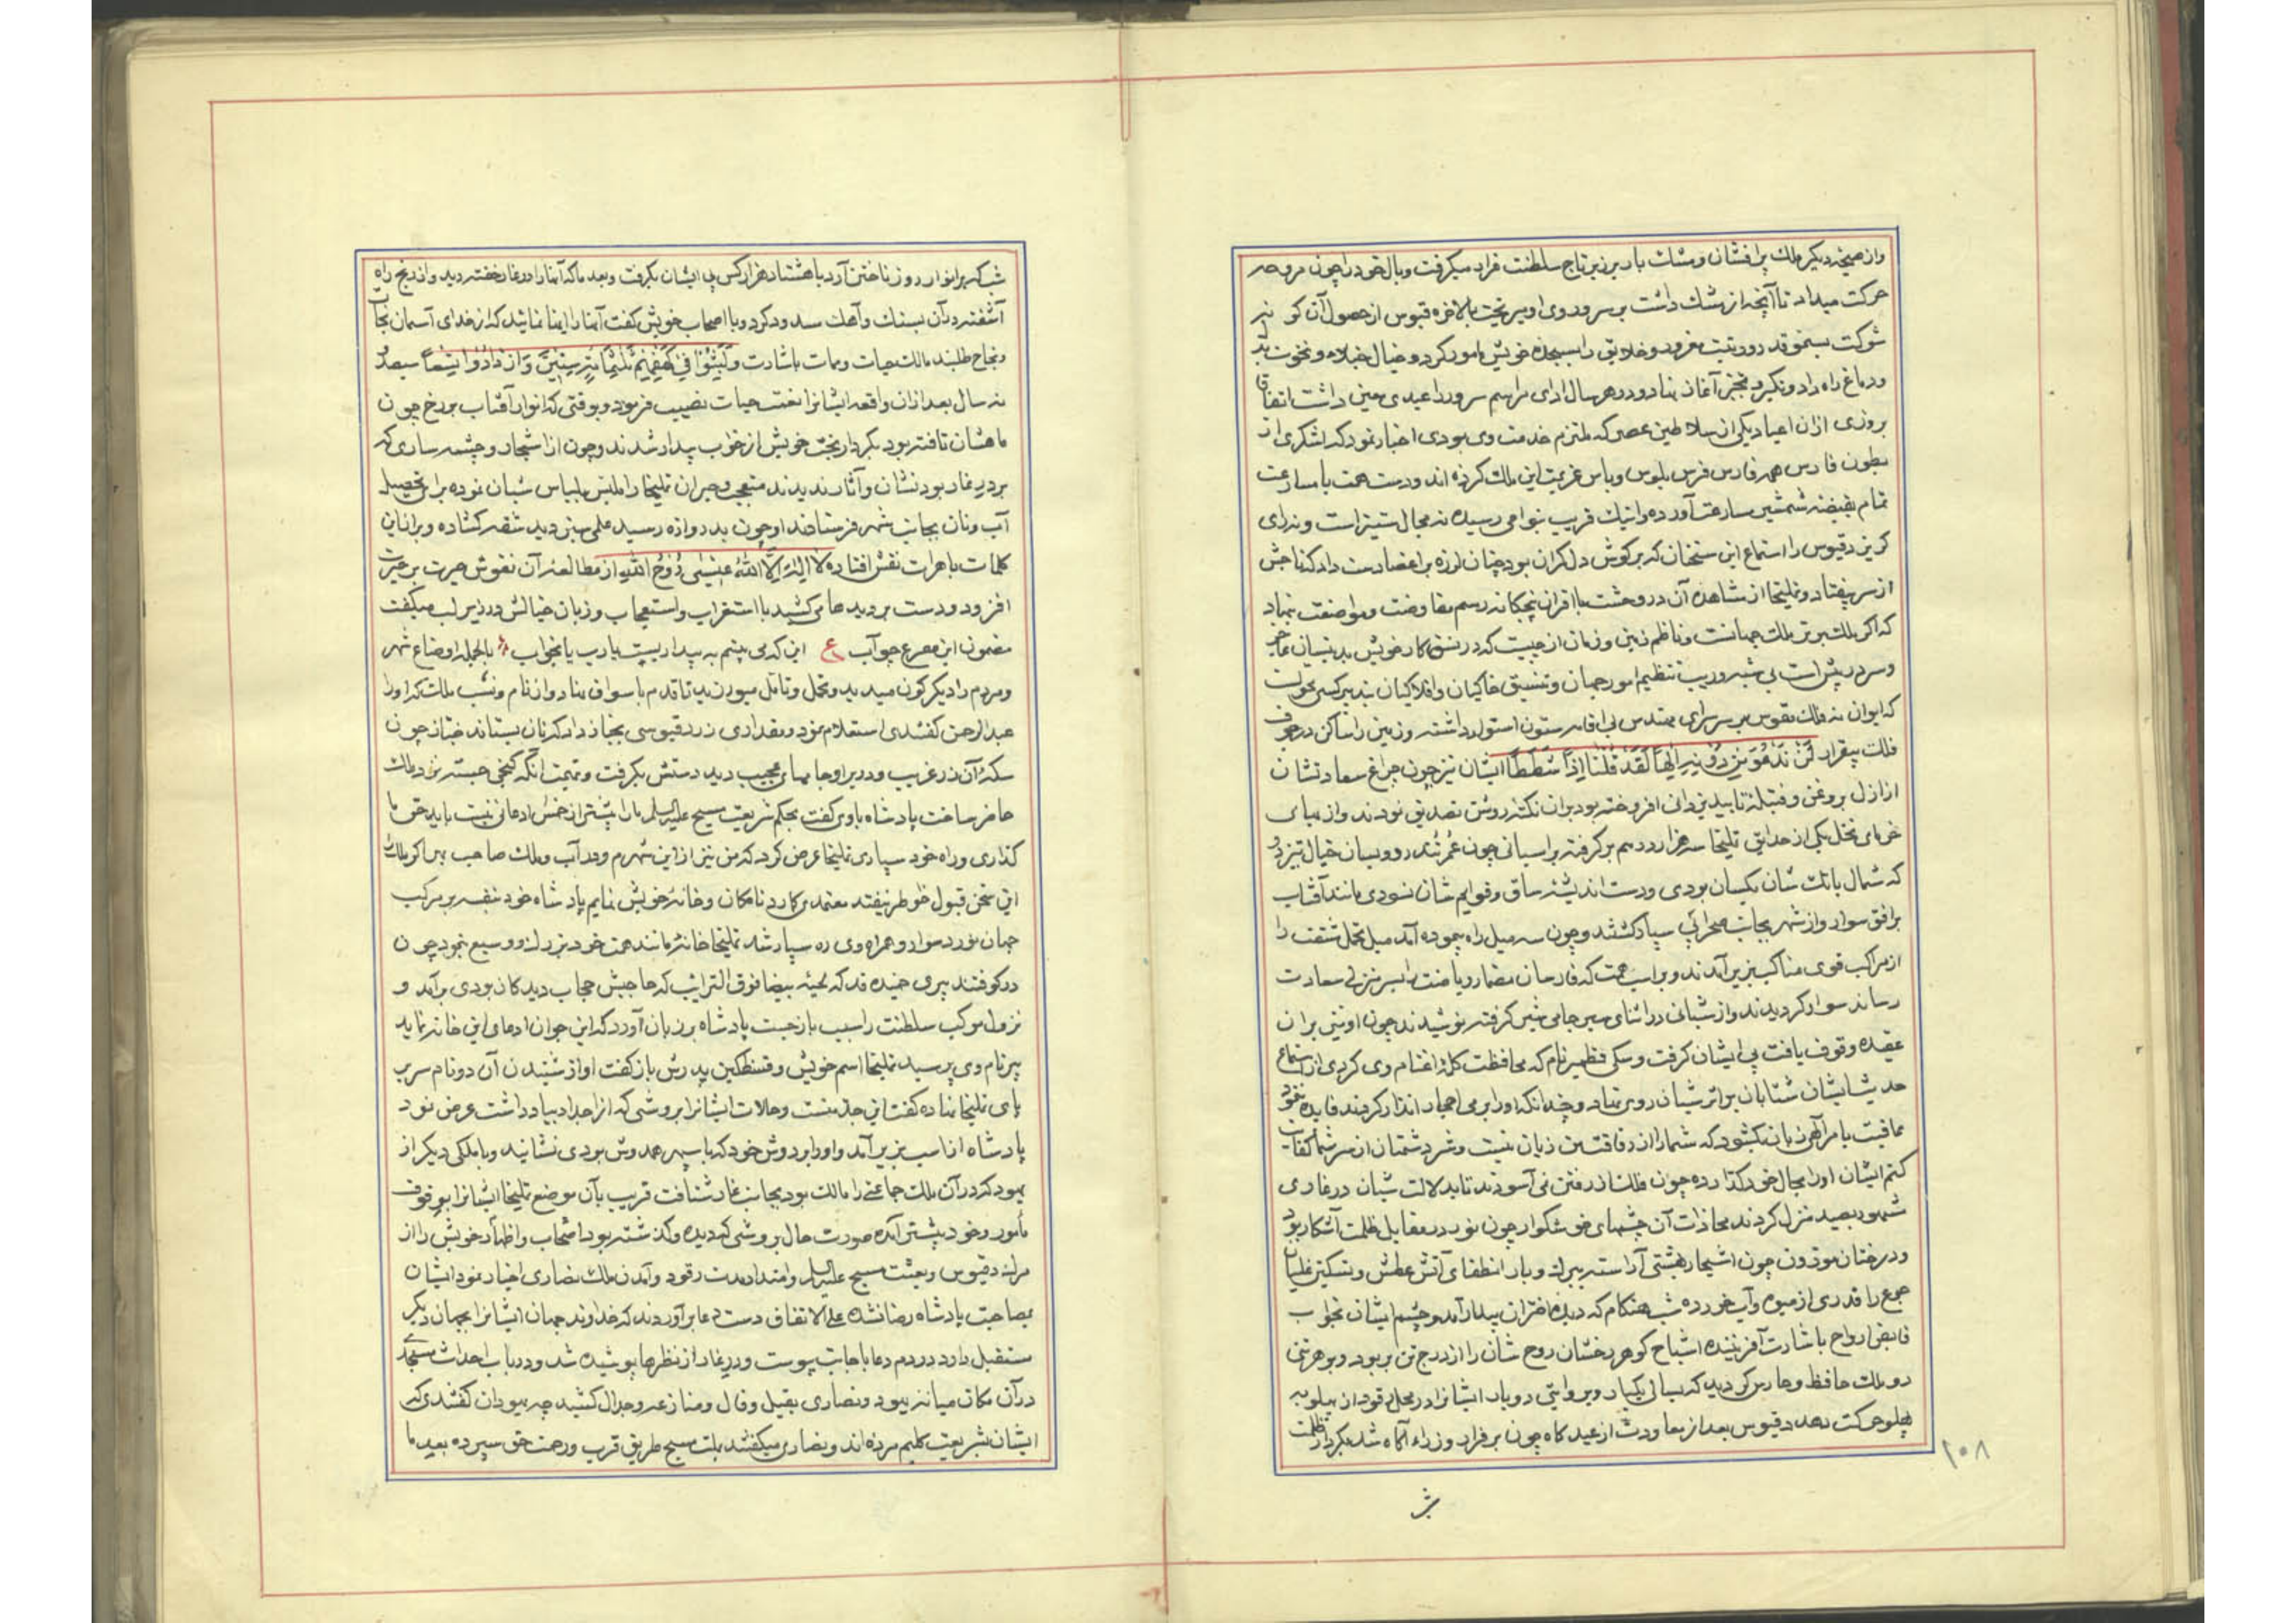 واز صحیفه دیگر ملک پر افشان ومشک بار بر زبر تاج سلطنت قرار میگرفت وبال خود را چون مروحه
حرکت میداد تا آنچه از مشک داشت بر سر و روی او میریخت بالاخره قیوس از حصول آن کو
شوکت بسمو قدر ورتبت مغرور وخلایق را بسجده خویش مامور کرد و خیال خیلاء و نخوت
ودماغ راه داد وتکبر وتجبر آغاز نهاد ودر هر سال ادای مراسم سرور را عیدی معین داشت اتفاقا
بروزی ازان اعیاد یکی از سلاطین عصر که ملتزم خدمت وی بودی اخبار نمود که لشکری از
بطون فارس همه فارس فرس بلوس وباس عزیمت این ملک کرده اند ودست همت با مسارعت
تمام بقبضه شمشیر سارعت آورده واینک قریب بنواحی رسیده نه مجال ستیز است ونه رای
گریز دقیوس را استماع این سخنان که بر گوش دل گران بود چنان لرزه بر اعضا دست داد که تاجش
از سر بیفتاد وتملیخا از مشاهده آن در وحشت با اقران پنجگانه رسم مفاوضت ومواضعت بنهاد
که اگر ملک برتر ملک جهانست وناظم زمین وزمان از چیست که در نسق کار خویش بدینسان عاجز
وسر در پیش است بی شبه وریب تنظیم امور جهان وتنسیق خاکیان وافلاکیان بتدبیر کسی محولست
که ایوان نه فلک مقوس بر سر سرای مقدس بی اقامه ستون استوار داشته وزمین را ساکن در جوف
فلک بیقرار لَنْ نَدْعُوَ مِنْ دُونِهِ اِلٰهًا لَقَدْ قُلْنَا اِذًا شَطَطًا ایشان نیز چون چراغ سعادتشان
از ازل بروغن وفتیله تایید یزدانی افروخته بود بران نکته روشن تصدیق نمودند واز بهای
خرمای نخل یکی از حدایق تملیخا سه هزار درهم بر گرفته بر اسبانی چون عمر تند رو وبسان خیال تیز دو
که شمال باتک شان یکسان بودی ودست اندیشه ساق وقوایم شان نسودی مانند آفتاب
بر افق سوار واز شهر بجانب صحرائی سپار گشتند وچون سه میل راه پیموده آمد میل تحمل مشقت را
از مراکب قوی مناکب بزیر آمدند وبر اسب همت که فارسان مضمار ریاضت را بسر منزل سعادت
رساند سوار گردیدند واز شبانی در اثنای سیر جامی شیر گرفته نوشیدند چون او نیز بران
عقیده وقوف یافت پی ایشان گرفت وسگی قطمیر نام که محافظت کله اغنام وی کردی از استماع
حدیث ایشان شتابان بر اثر شبان روی نهاد وچندانکه او را برمی احجار انذار کردند فایده ننمود
عاقبت بامر الهی زبان بگشود که شما را از رفاقت من زیان نیست وشر دشمنان از سر شما کفایت
کنم ایشان او را بحال خود گذارده چون فلک از رفتن نمی آسودند تا بدلالت شبان در غاری
مشهور بصید منزل کردند محاذات آن چشمهای خوشگوار چون نور در مقابل ظلمت آشکار بود
ودرختان موزون چون اشجار بهشتی آراسته ببرگ وبار انطفای آتش عطش وتسکین غلیان
جوع را قدری از میوه وآب خورده شب هنگام که دیده اختران بیدار آمد وچشم ایشان بخواب
قابض ارواح باشارت آفریننده اشباح گوهر رخشان روح شان را از درج تن بربود وبر هر تنی
دو ملک حافظ وحارس گردید که بسالی یکبار وبروایتی دو بار ایشانرا در محل رقود از پهلو به
پهلو حرکت دهد دقیوس بعد از معاودت از عیدگاه چون بر فرار وزراء آگاه شد بکردار ظلمت
۲۰۸
شب که بر انوار روز تاختن آرد با هشتاد هزار کس پی ایشان بگرفت وبعد ما که آنها را در غار خفته دید واز رنج راه
آشفته در آن بسنگ وآهک سدود کرد وبا اصحاب خویش گفت آنها را اینها نمائید که از خدای آسمان نجات
ونجاح طلبند مالک حیات وممات باشارت وَلَبِثُوا فِی کَهْفِهِمْ ثَلٰثَمِائَةٍ سِنِینَ وَازْدَادُوا تِسْعًا سیصد و
نه سال بعد ازان واقعه ایشانرا نعمت حیات نصیب فرمود وبوقتی که انوار آفتاب بر رخ چون
ماهشان تافته بود بکردار بخت خویش از خواب بیدار شدند وچون از اشجار وچشمه ساری که
بر در غار بود نشان وآثار ندیدند متعجب وحیران تملیخا را ملبس بلباس شبان نموده برای تحصیل
آب ونان بجانب شهر فرستادند او چون بدروازه رسید علمی سبز دید شقه گشاده وبر انان این
کلمات باهرات نقش افتاده لا اِلٰهَ اِلَّا اللهُ عِیسٰی رُوحُ اللهِ از مطالعه آن نقوش حیرت بر حیرت
افزود ودست بر دیدها می کشید با استغراب واستعجاب وزبان خیالش در زیر لب میگفت
مضمون این مصرع جواب ع این که می بینم به بیداریست یارب یا بخواب بالجمله اوضاع شهر
ومردم را دیگر گون میدید وتخیل وتامل میورزید تا قدم باسواق نهاد واز نام ونسب ملک که او را
عبدالرحمن گفتندی استعلام نمود ومقداری زر دقیوسی بخباز داد که نان بستاند خباز چون
سکه آن زر غریب ودر بر او جامهای عجیب دید دستش بگرفت وبتهمت آنکه گنجی جسته نزد ملک
حاضر ساخت پادشاه باوی گفت بحکم شریعت مسیح علیه السلم ما را بیشتر از خمس ادعائی نیست باید حق ما
گذاری وراه خود سپاری تملیخا عرض کرد که من نیز از این شهرم ودر آب وملک صاحب بهر اگر ملک
این سخن قبول خاطر نیفتد معتمدی گمارد تا مکان وخانه خویش نمایم پادشاه خود بنفسه بر مرکب
جهان نورد سوار وهمراه وی ره سپار شد تملیخا خانه مانند همت خود بزرگ ووسیع بنمود چون
در کوفتند پیری خمیده قد که لحیه بیضا فوق الترائب که حاجبش حجاب دیدگان بودی برآمد و
نزول موکب سلطنت را سبب باز جست پادشاه بر زبان آورد که این جوان ادعای این خانه نماید
پیر نام وی پرسید تملیخا اسم خویش وقسطکین پدرش باز گفت او از شنیدن آن دو نام سر بر
پای تملیخا نهاده گفت این جد منست وحالات ایشانرا بروشی که از اجداد بیاد داشت عرض نمود
پادشاه از اسب بزیر آمد واو را بر دوش خود که با سپهر همدوش بودی نشانید وبا ملکی دیگر از
یهود که در آن ملک جماعتی را مالک بود بجانب غار شتافت قریب بآن موضع تملیخا ایشانرا بوقوف
مأمور وخود پیشتر آمده صورت حال بروشی که دیده وگذشته بود باصحاب واظهار خویش را از
مرگ دقیوس وبعثت مسیح علیه السلم وامتداد مدت رقود وآمدن ملک نصاری اخبار نمود ایشان
بمصاحبت پادشاه رضا نشده علی الاتفاق دست دعا برآوردند که خداوند جهان ایشانرا بجهان دیگر
مستقبل دارد در دم دعا باجابت پیوست ودر غار از نظرها پوشیده شد ودر باب احداث مسجد
در آن مکان میانه یهود ونصاری بقیل وقال ومنازعه وجدال کشید چه یهودان گفتندی که
ایشان شریعت کلیم مرده اند ونصاری میگفتند بملت مسیح طریق قرب ورحمت حق سپرده بعد ما